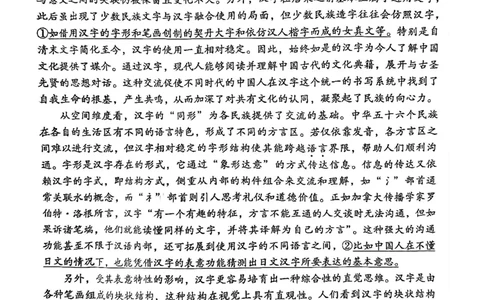 此后虽出现了少数民族文字与汉字融合使用的局面，但少数民族造字往往会仿照汉字，
①如借用汉字的字形和笔画创制的契丹大字和依仿汉人楷字而成的女真文等。特别是自
清末文字简化至今，汉字的使用一直相对稳定。因此，始终如是的汉字为今人了解中国
文化提供了媒介。通过汉字，现代人能够阅读并理解中国古代的文化典籍，展开与古圣
先贤的思想对话。这种交流促使不同时代的中国人在汉字这个统一的书写系统中找到了
自我生命的根基，产生共鸣，从而加深了对共有文化的认同，凝聚起了民族的向心力。
从空间维度看，汉字的“同形”为各民族提供了交流的基础。中华五十六个民族
在各自的生活区有不同的语言特色，形成了不同的方言区。若仅依靠发音，各方言区之
间难以进行交流，但汉字相对稳定的字形结构使其能跨越语言界限，帮助人们顺利沟
通。字形是汉字存在的形式，它通过“象形达意”的方式传达信息。信息的传达又依
赖汉字的字式，即结构方式，侧重从内部的构件组合来交流和理解，如“氵”部首通
常关联水的概念，而“礻”部首则引人思考礼仪和道德价值。正如加拿大传播学家罗
伯特·洛根所言，汉字“有一个有趣的特征，方言不能互通的人交谈时无法沟通，但如
果诉诸笔端，他们就能读懂同样的文字，并将其译解为自己的方言”。这种强大的沟通
功能甚至不限于汉语内部，还可拓展到使用汉字的不同语言之间，②比如中国人在不懂
日文的情况下，也能凭借汉字的表意功能猜测出日文汉字所要表达的基本意思。
另外，受其表意特性的影响，汉字更容易培育出一种综合性的直觉思维。汉字是由
各种笔画组成的块状结构，这种结构在视觉上具有直观性。人们看到汉字的块状结构